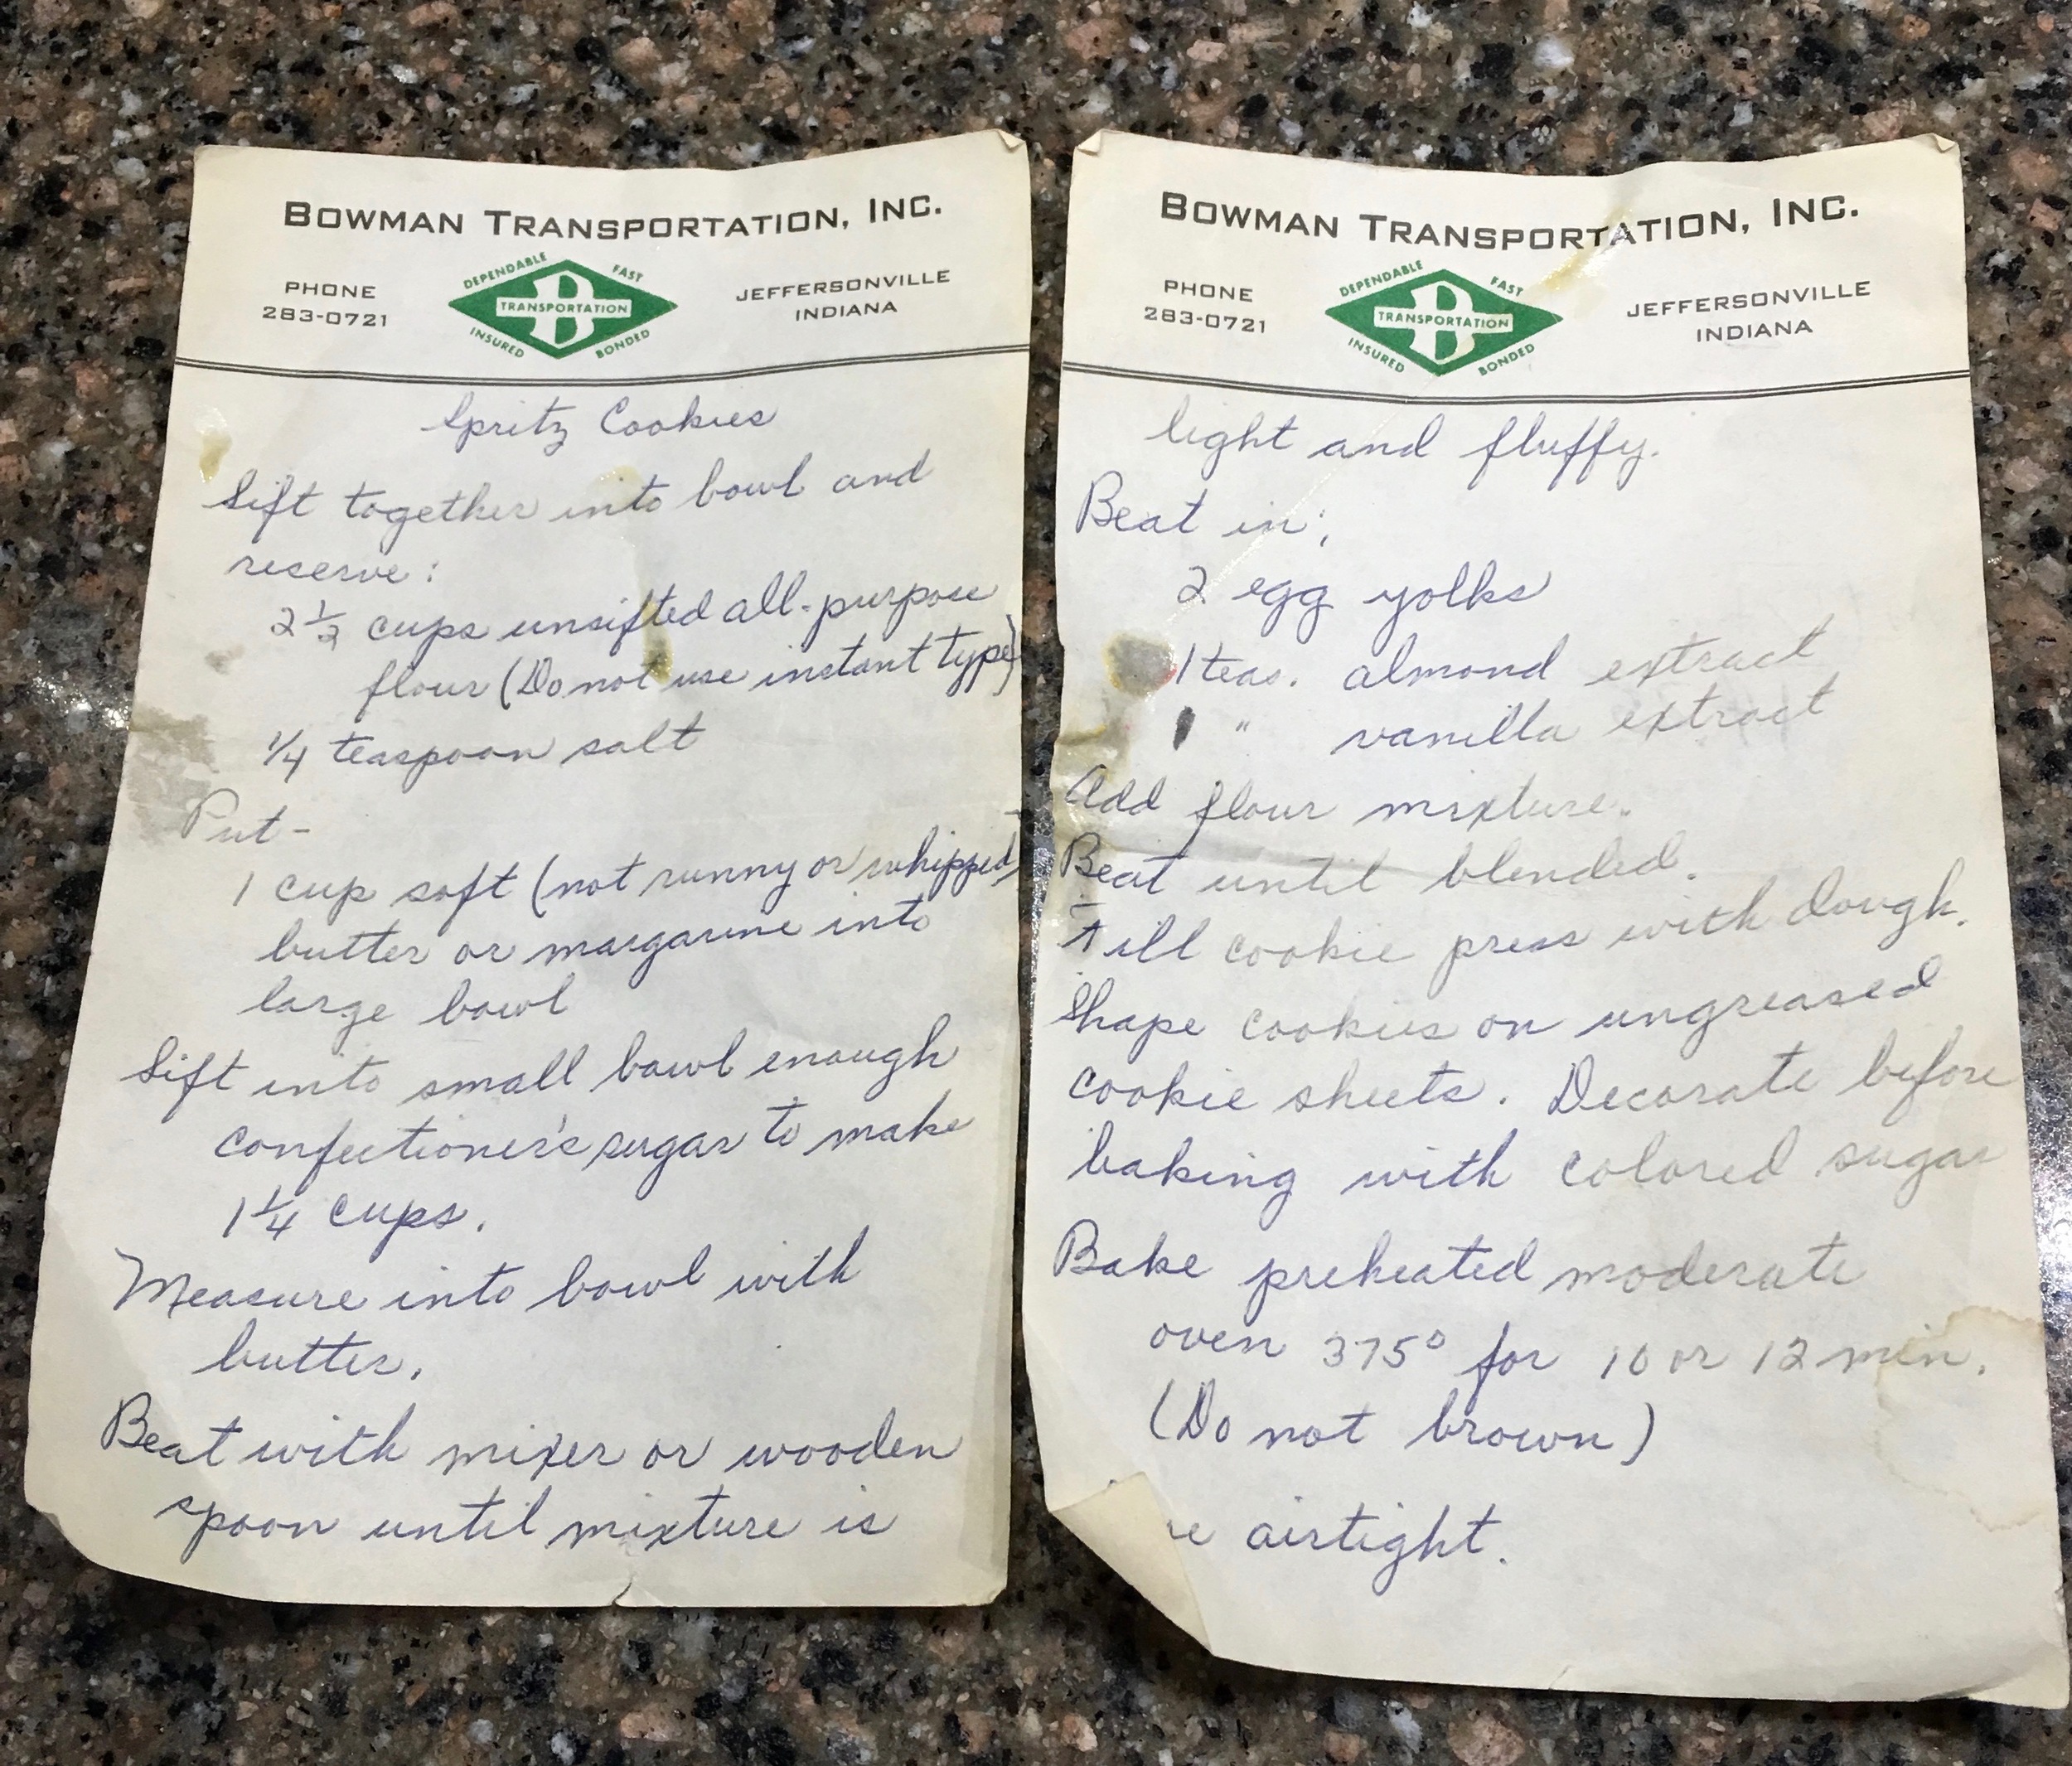 BOWMAN TRANSPORTATION, INC.
PHONE
283-0721
DEPENDABLE FAST
B
TRANSPORTATION
INSURED BONDED
JEFFERSONVILLE
INDIANA
Spritz Cookies
Sift together into bowl and
reserve:
2 1/2 cups unsifted all-purpose
flour (Do not use instant type)
1/4 teaspoon salt
Put-
1 cup soft (not runny or whipped)
butter or margarine into
large bowl
Sift into small bowl enough
confectioner's sugar to make
1 1/4 cups.
Measure into bowl with
butter.
Beat with mixer or wooden
spoon until mixture is
BOWMAN TRANSPORTATION, INC.
PHONE
283-0721
DEPENDABLE FAST
B
TRANSPORTATION
INSURED BONDED
JEFFERSONVILLE
INDIANA
light and fluffy.
Beat in;
2 egg yolks
1 teas. almond extract
1 " vanilla extract
Add flour mixture.
Beat until blended.
Fill cookie press with dough.
Shape cookies on ungreased
cookie sheets. Decorate before
baking with colored sugar
Bake preheated moderate
oven 375° for 10 or 12 min.
(Do not brown)
airtight.